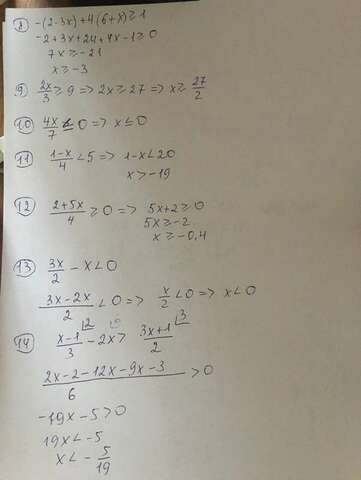 8 -(2-3x)+4(6+x)≥1
-2+3x+24+4x-1≥0
7x≥-21
x≥-3
9 2x/3 ≥ 9 => 2x≥27 => x≥ 27/2
10 4x/7 ≤ 0 => x≤0
11 1-x/4 < 5 => 1-x<20
x>-19
12 2+5x/4 ≥ 0 => 5x+2≥0
5x≥-2
x≥-0,4
13 3x/2 - x<0
3x-2x/2 <0 => x/2 <0 => x<0
14 x-1/3 |2 - 2x > 3x+1/2 |3
2x-2-12x-9x-3/6 >0
-19x-5>0
19x<-5
x<- 5/19